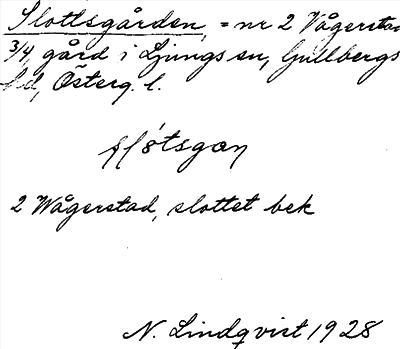 Slottsgården, = nr 2 Vågerstad
3/4 gård i Ljungs sn, Gullbergs
hd, Österg. l.
slòtsgan
2 Wågerstad, slottet bek
N. Lindqvist 1928